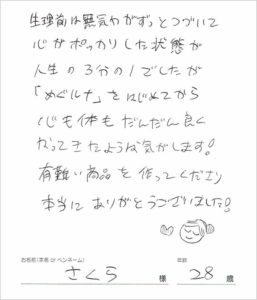 生理前は無気力がずっとつづいて
心がポッカリした状態が
人生の3分の1でしたが
「めぐルナ」をはじめてから
心も体もだんだん良く
なってきたような気がします!
有難い商品を作ってくださり
本当にありがとうございました!
お名前(本名 or ペンネーム) 年齢
さくら 様 28 歳